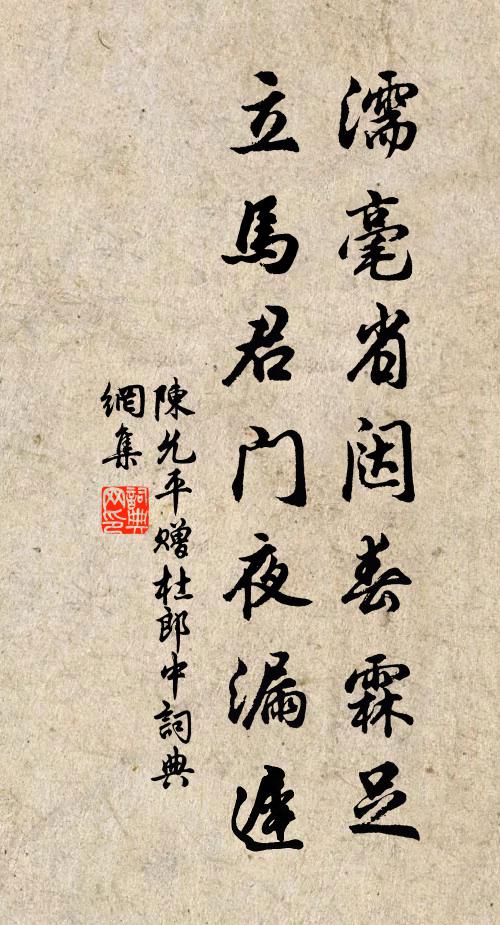 濡毫省闼春霖足
立馬君門夜漏遲
陳允平贈杜郎中詞典
網集
詞典
网印